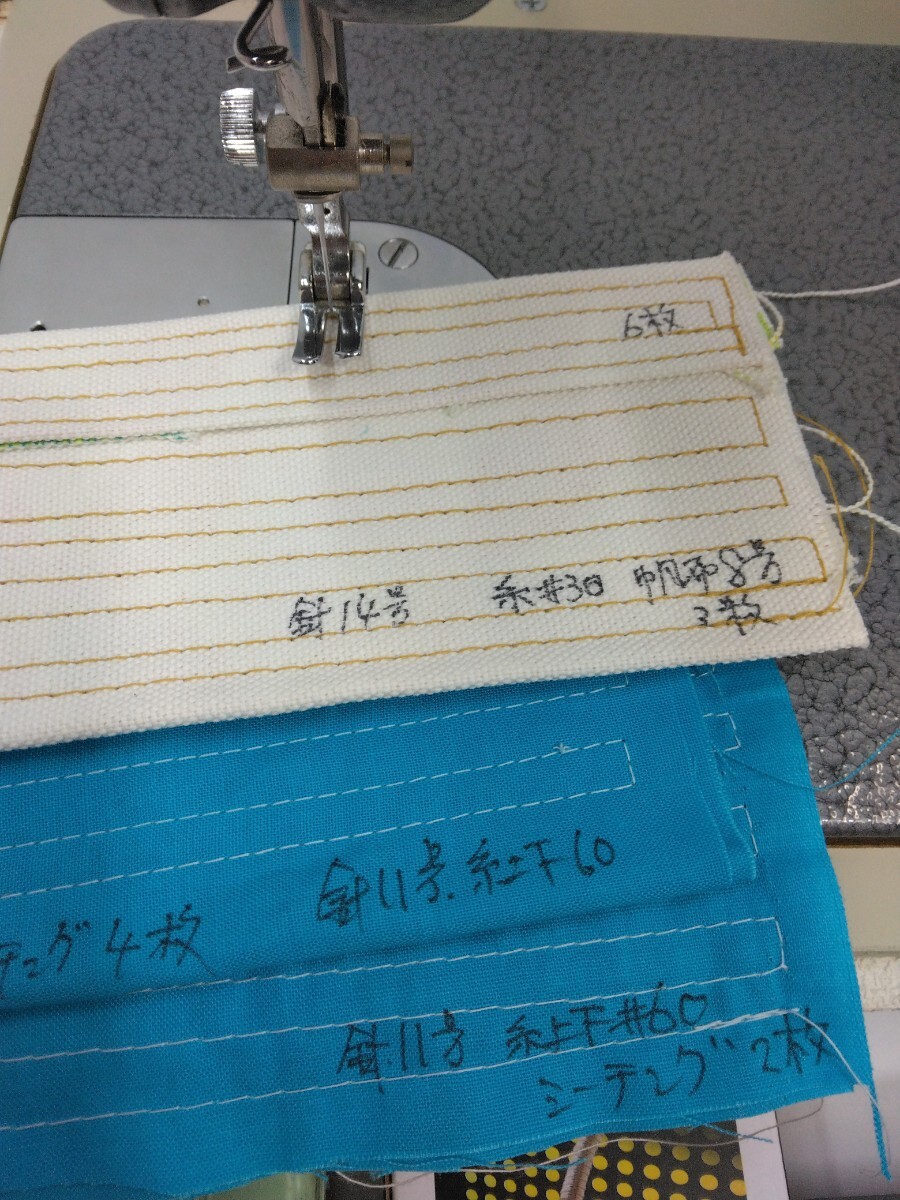 6枚
針14号 糸#30 帆布8号
3枚
針11号.糸上下60
テング4枚
針11号 糸上下#60
シーテング2枚